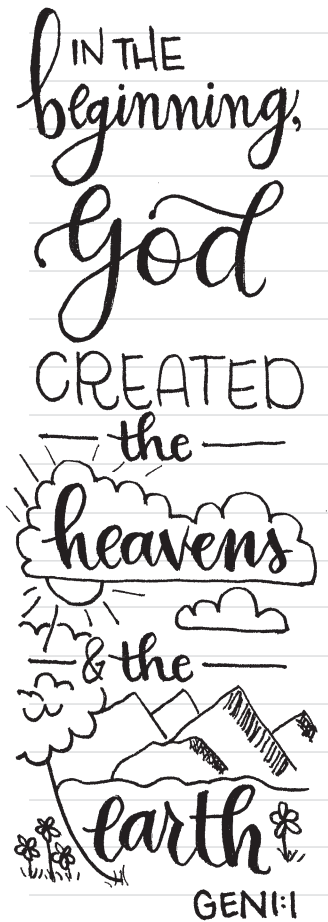 IN THE
beginning,
God
CREATED
the
heavens
& the
earth
GEN 1:1